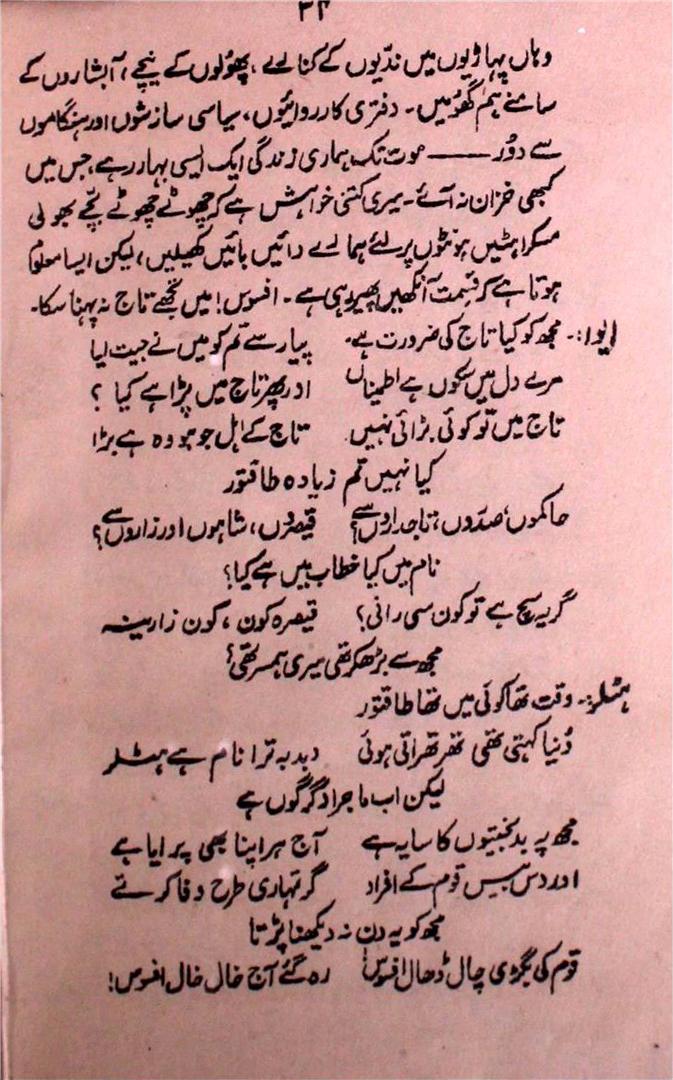 ۳۴
وہاں پہاڑیوں میں ندّیوں کے کنارے، پھُولوں کے نیچے، آبشاروں کے
سامنے ہم گھُومیں۔ دفتری کارروائیوں، سیاسی سازشوں اور ہنگاموں
سے دُور —— موت تک ہماری زندگی ایک ایسی بہار رہے جس میں
کبھی خزان نہ آئے۔ میری کتنی خواہش ہے کہ چھوٹے چھوٹے بچّے بھولی
مسکراہٹیں ہونٹوں پر لئے ہمارے دائیں بائیں کھیلیں، لیکن ایسا معلوم
ہوتا ہے کہ قسمت آنکھیں پھیر رہی ہے۔ افسوس! میں تجھے تاج نہ پہنا سکا۔
ایوا:۔ مجھ کو کیا تاج کی ضرورت ہے۔ پیار سے تم کو میں نے جیت لیا
مرے دل میں سکوں ہے اطمیناں اور پھر تاج میں پڑا ہے کیا ؟
تاج میں تو کوئی بڑائی نہیں۔ تاج کے اہل جو ہو وہ ہے بڑا
کیا نہیں تم زیادہ طاقتور
حاکموں، صدروں، تاجداروں سے؟ قیصروں، شاہوں اور زاروں سے؟
نام میں کیا خطاب میں ہے کیا؟
گر یہ سچ ہے تو کون سی رانی؟ قیصرہ کون، کون زارینہ
مجھ سے بڑھ کر تھی میری ہمسر تھی؟
ہٹلر:۔ وقت تھا کوئی میں تھا طاقتور
دُنیا کہتی تھی تھرتھراتی ہوئی دبدبہ ترا نام ہے ہٹلر
لیکن اب ماجرا دگرگوں ہے
مجھ پہ بدبختیوں کا سایہ ہے آج ہر اپنا بھی پرایا ہے
اور دس بیس قوم کے افراد گر تمہاری طرح وفا کرتے
مجھ کو یہ دن نہ دیکھنا پڑتا
قوم کی بگڑی چال ڈھال افسوس! رہ گئے آج خال خال افسوس!